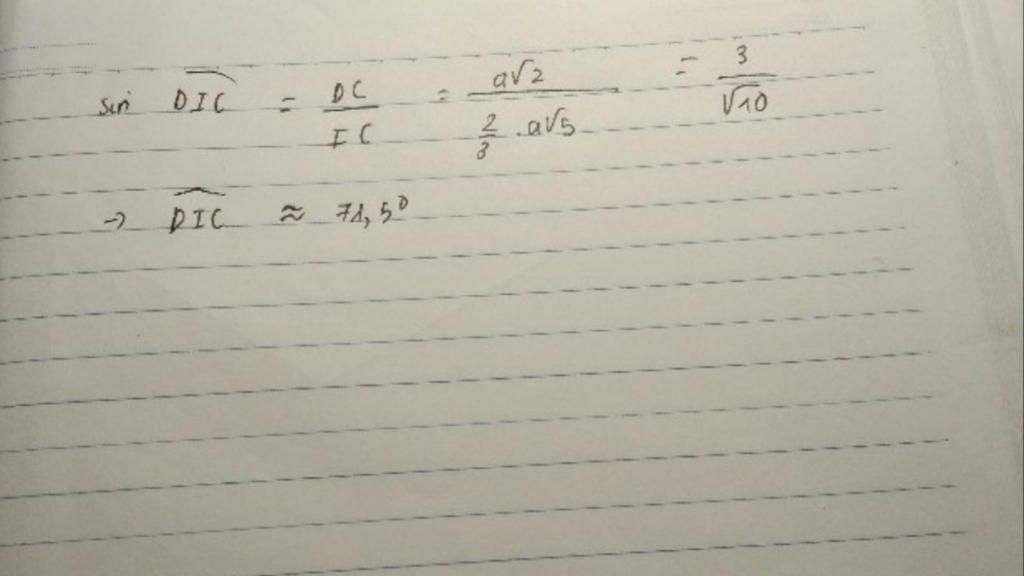 sin DIC = DC / IC = a√2 / (2/3 . a√5) = 3 / √10
→ DIC ≈ 71,5°